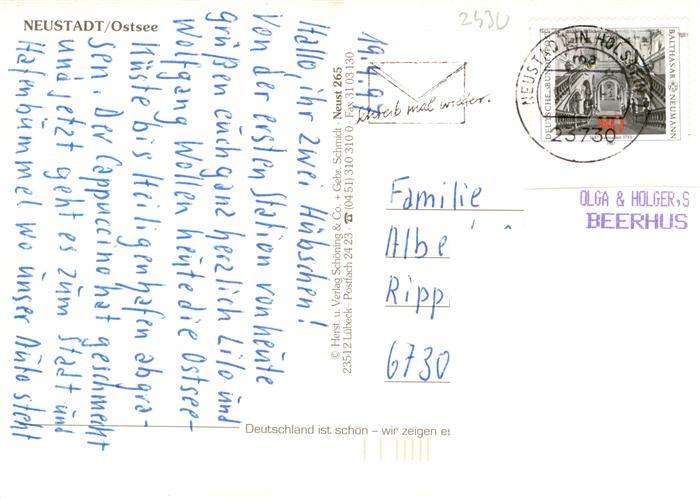 NEUSTADT/Ostsee
19.4.95
Hallo ihr zwei Hübschen!
Von der ersten Station von heute
grüßen Euch ganz herzlich Lilo und
Wolfgang. Wollen heute die Ostsee-
Küste bis Heiligenhafen abgra-
sen. Der Cappuccino hat geschmeckt
und jetzt geht es zum Stadt und
Hafenbummel wo unser Auto steht
© Herst. u. Verlag Schöning & Co. + Gebr. Schmidt Neust 265
23512 Lübeck · Postfach 24 23 ☎ (04 51) 310 310 0 Fax 31 03 130
Deutschland ist schön – wir zeigen es
2530
schreib mal wieder.
NEUSTADT IN HOLSTEIN
23730
DEUTSCHE BUNDESPOST
BALTHASAR NEUMANN
80
OLGA & HOLGER,S
BEERHUS
Familie
Albe
Ripp
6730